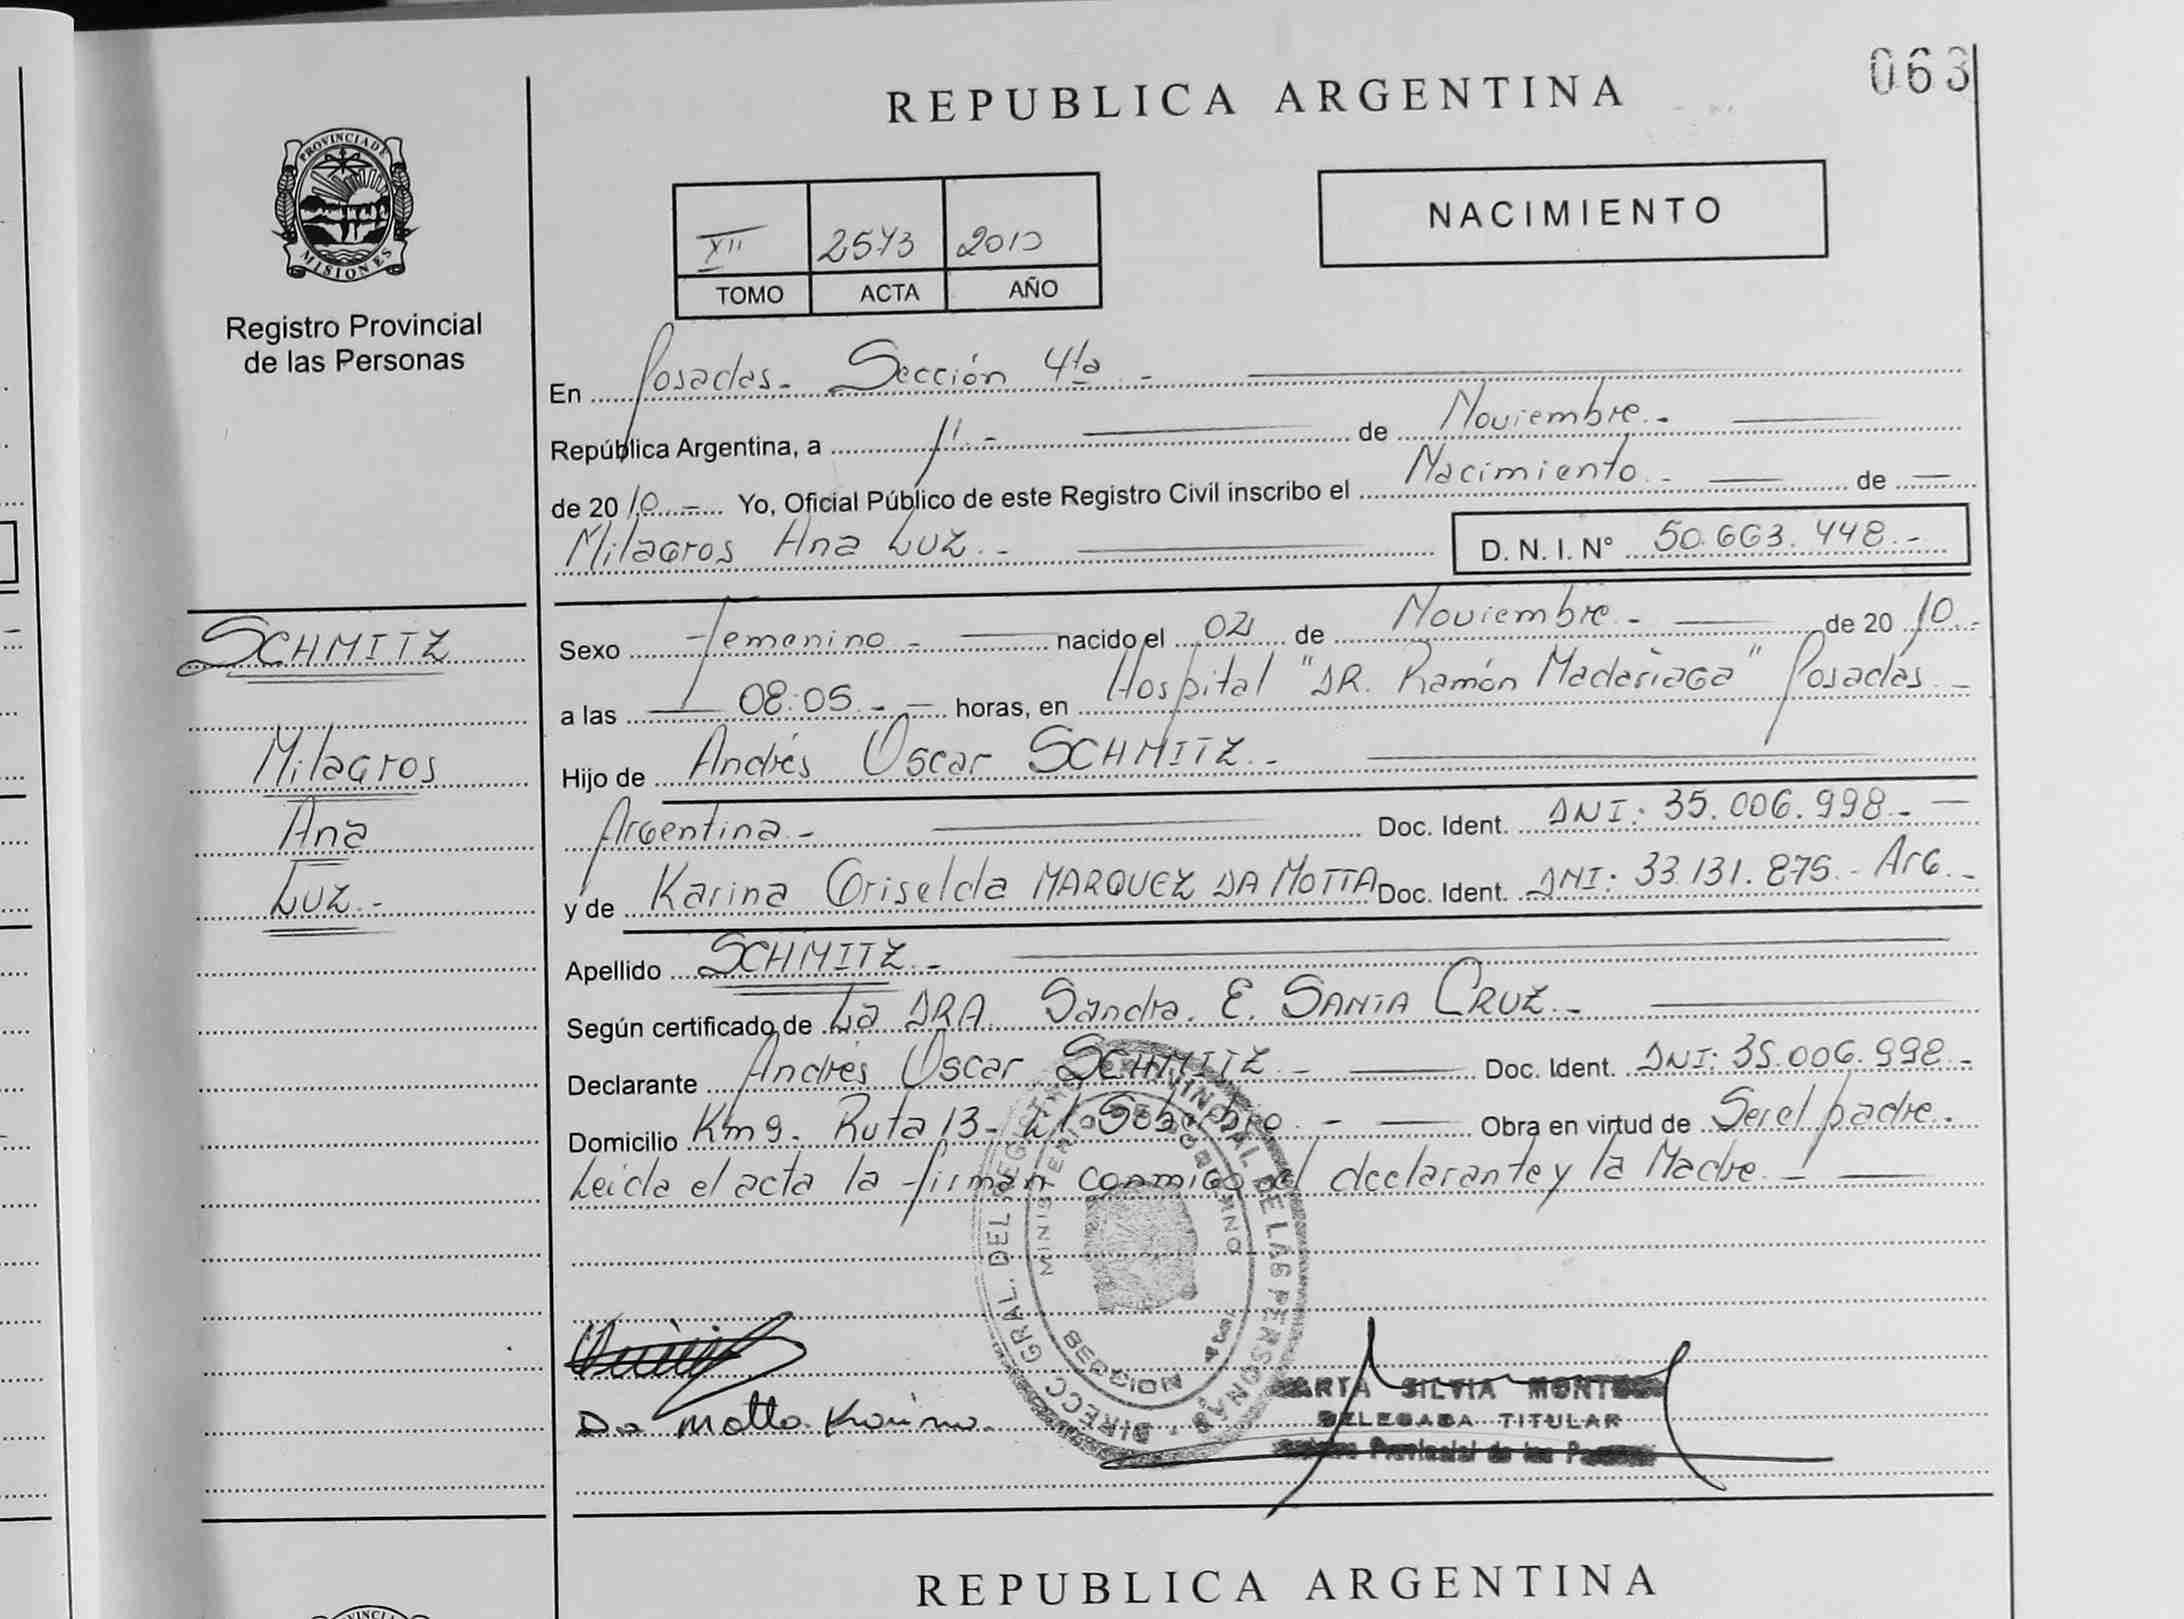 063
REPUBLICA ARGENTINA
PROVINCIA DE
MISIONES
Registro Provincial
de las Personas
XII 2573 2010
TOMO ACTA AÑO
NACIMIENTO
En Posadas - Sección 4ta -
República Argentina, a 11 - de Noviembre -
de 2010 - Yo, Oficial Público de este Registro Civil inscribo el Nacimiento - de
Milagros Ana Luz. - D. N. I. N° 50.663.448. -
SCHMITZ
Milagros
Ana
Luz. -
Sexo Femenino - nacido el 02 de Noviembre - de 2010 -
a las 08:05 - horas, en Hospital "DR. Ramón Madariaga" Posadas -
Hijo de Andrés Oscar SCHMITZ. -
Argentina - Doc. Ident. DNI: 35.006.998. -
y de Karina Griselda MARQUEZ DA MOTTA Doc. Ident. DNI: 33.131.875. - Arg. -
Apellido SCHMITZ. -
Según certificado de La DRA. Sandra. E. SANTA CRUZ. -
Declarante Andrés Oscar SCHMITZ. - Doc. Ident. DNI: 35.006.998. -
Domicilio Km 9. Ruta 13 - El Soberbio. - Obra en virtud de Ser el padre.
Leida el acta la firman conmigo el declarante y la Madre. -
DIRECC. GRAL. DEL REGISTRO PROVINCIAL DE LAS PERSONAS
MINISTERIO DE GOBIERNO
SECCION 4ta.
Da Motta Karina.
MARTA SILVIA
DELEGADA TITULAR
Provincial de las Personas
REPUBLICA ARGENTINA